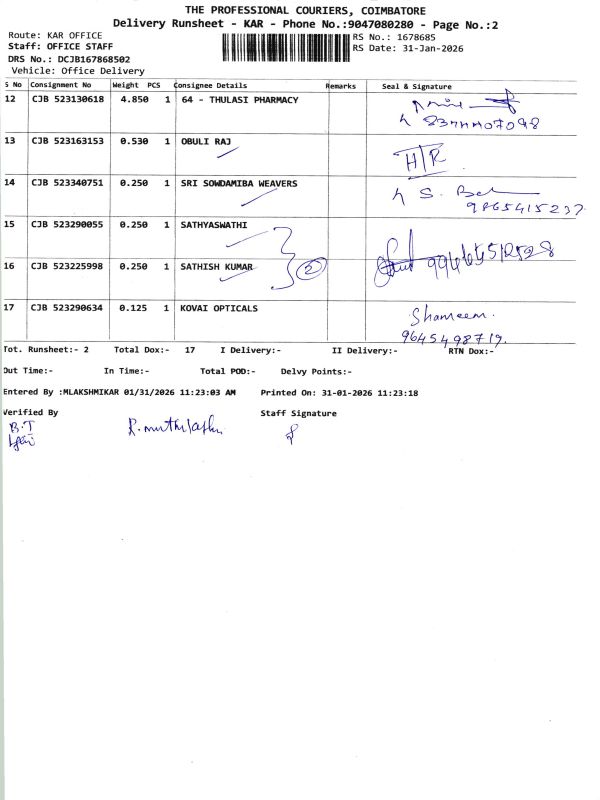 THE PROFESSIONAL COURIERS, COIMBATORE
Delivery Runsheet - KAR - Phone No.:9047080280 - Page No.:2
Route: KAR OFFICE
RS No.: 1678685
Staff: OFFICE STAFF
RS Date: 31-Jan-2026
DRS No.: DCJB167868502
Vehicle: Office Delivery
S No Consignment No Weight PCS Consignee Details Remarks Seal & Signature
12 CJB 523130618 4.850 1 64 - THULASI PHARMACY
13 CJB 523163153 0.530 1 OBULI RAJ H/R
14 CJB 523340751 0.250 1 SRI SOWDAMIBA WEAVERS
9865415237
15 CJB 523290055 0.250 1 SATHYASWATHI
16 CJB 523225998 0.250 1 SATHISH KUMAR 2
17 CJB 523290634 0.125 1 KOVAI OPTICALS Shameem.
9645498719.
Tot. Runsheet:- 2 Total Dox:- 17 I Delivery:- II Delivery:- RTN Dox:-
Out Time:- In Time:- Total POD:- Delvy Points:-
Entered By :MLAKSHMIKAR 01/31/2026 11:23:03 AM Printed On: 31-01-2026 11:23:18
Verified By Staff Signature
B.T